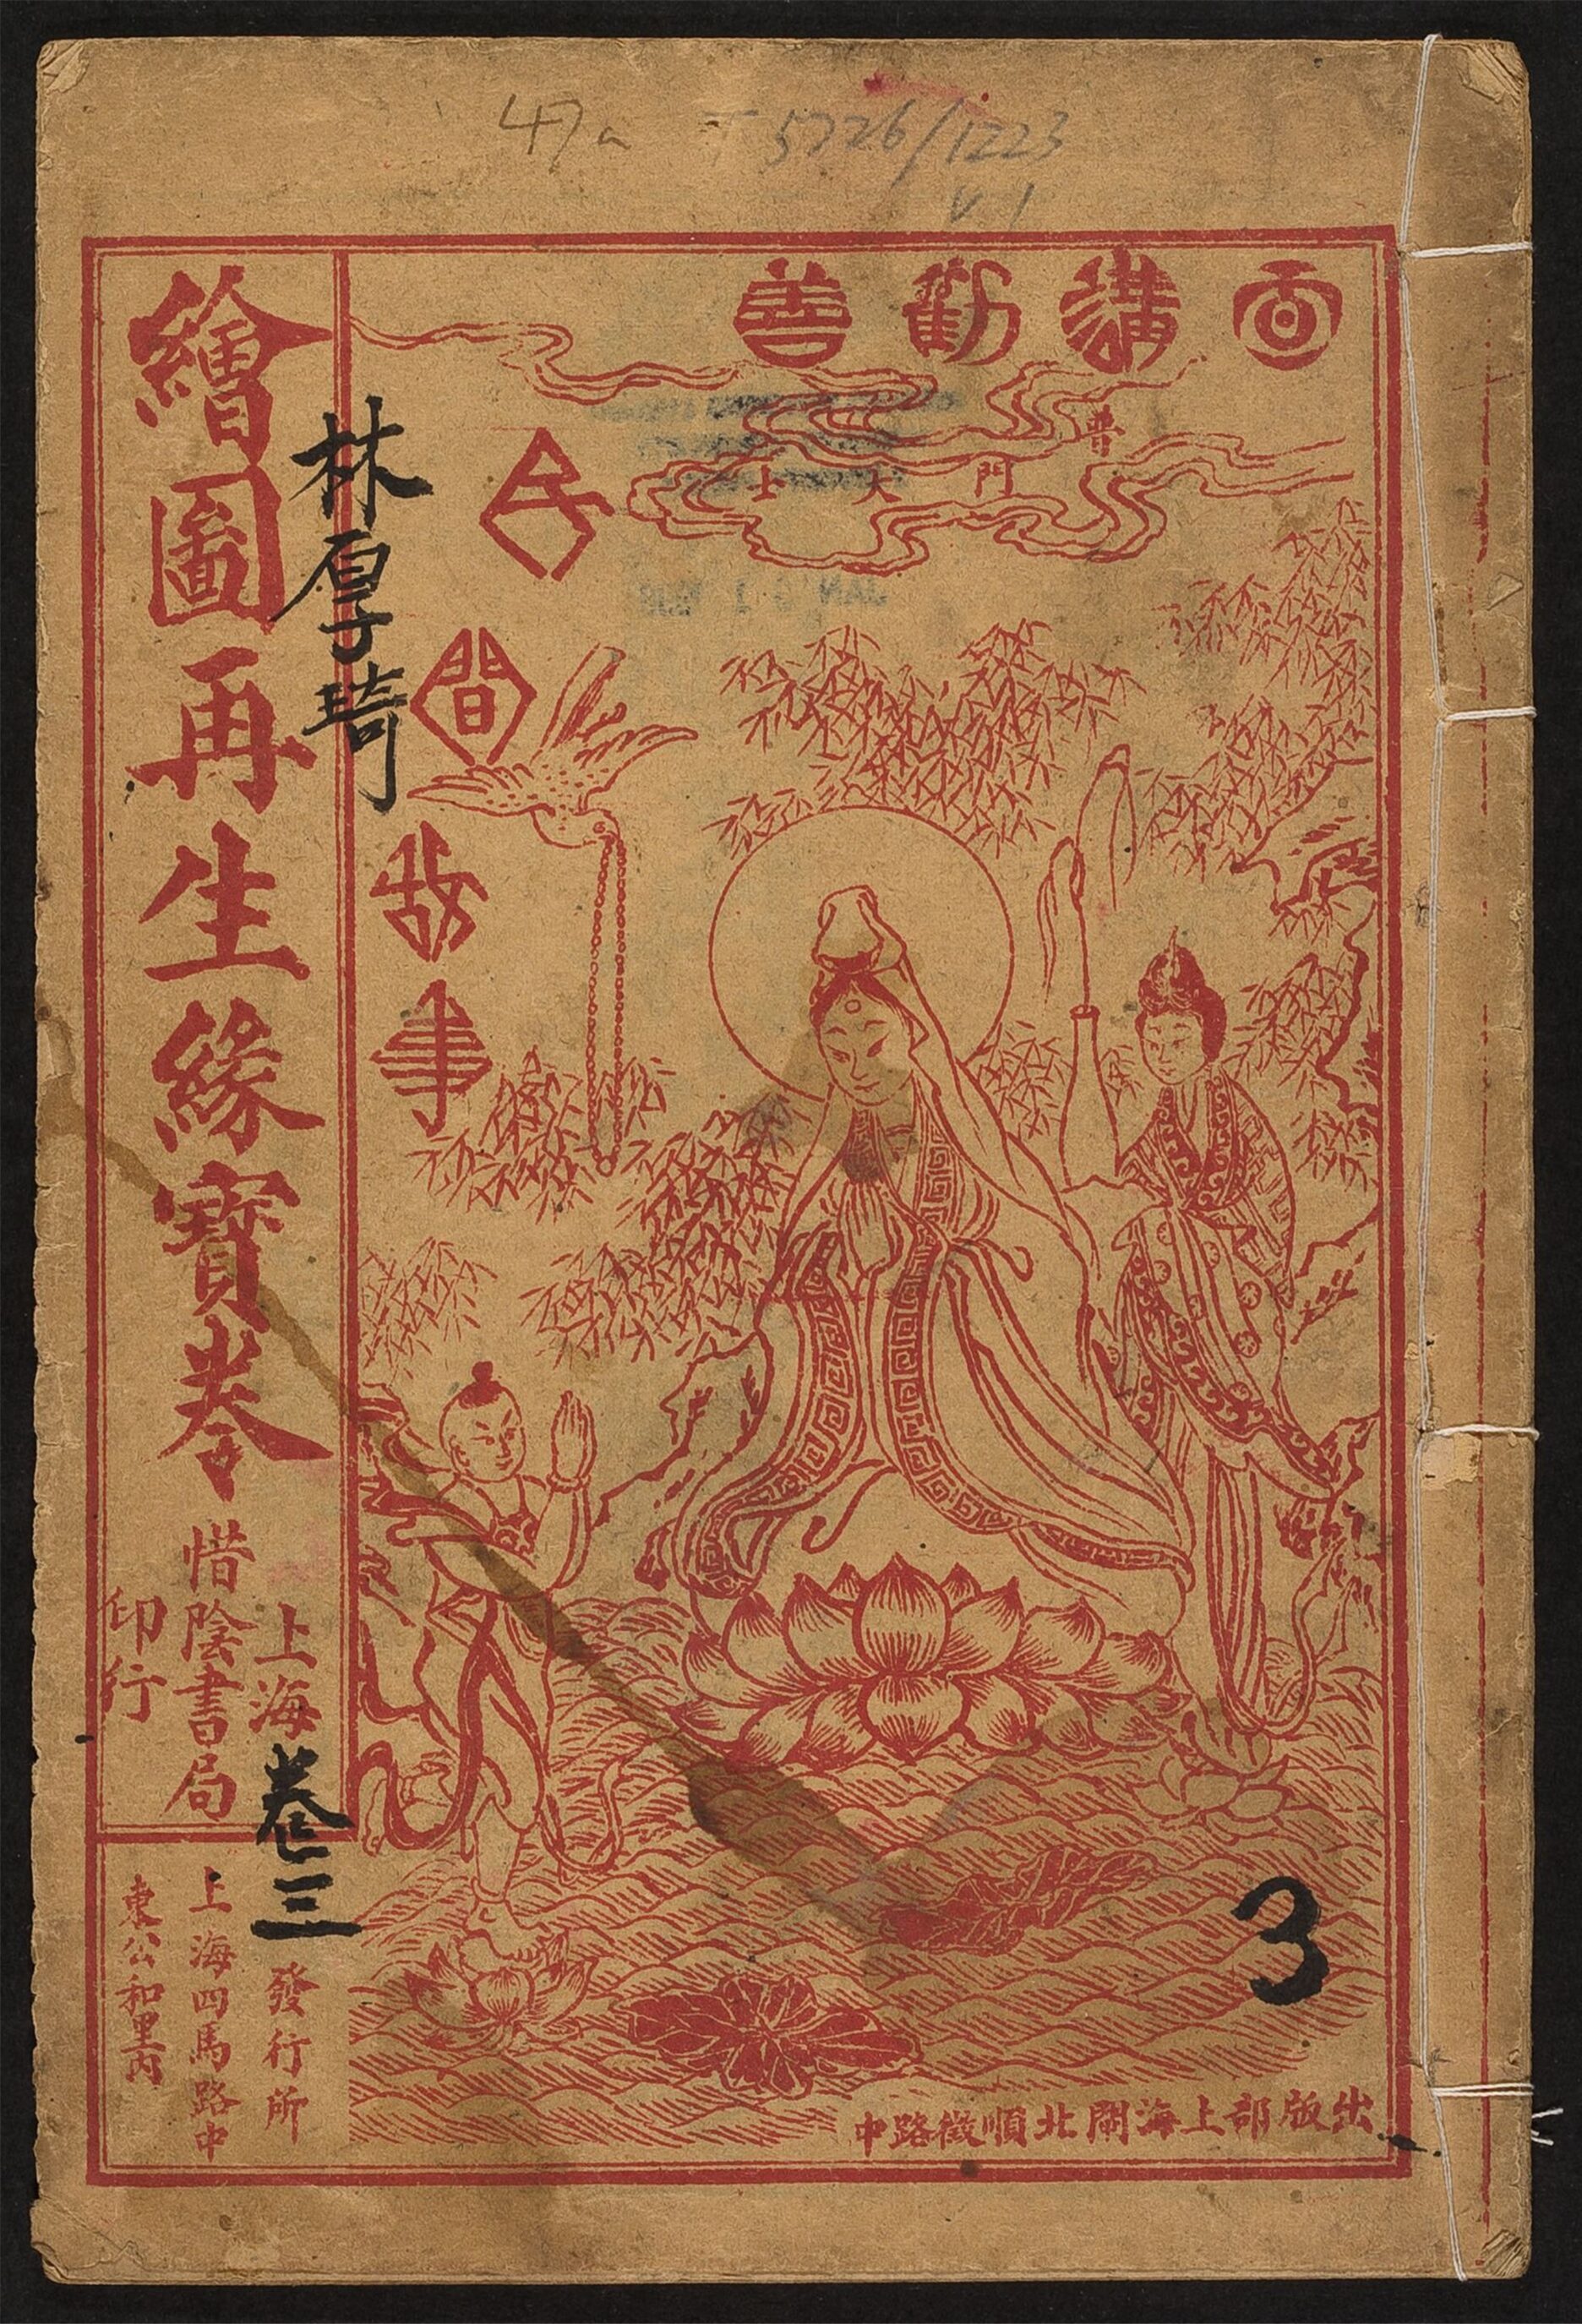 47a T 5726/1223
v 1
宣講勸善
普門大士
民間故事
繪圖再生緣寶卷
林厚琦
上海
惜陰書局
印行
卷三
發行所
上海四馬路中
東公和里內
3
出版部上海閘北順徵路中